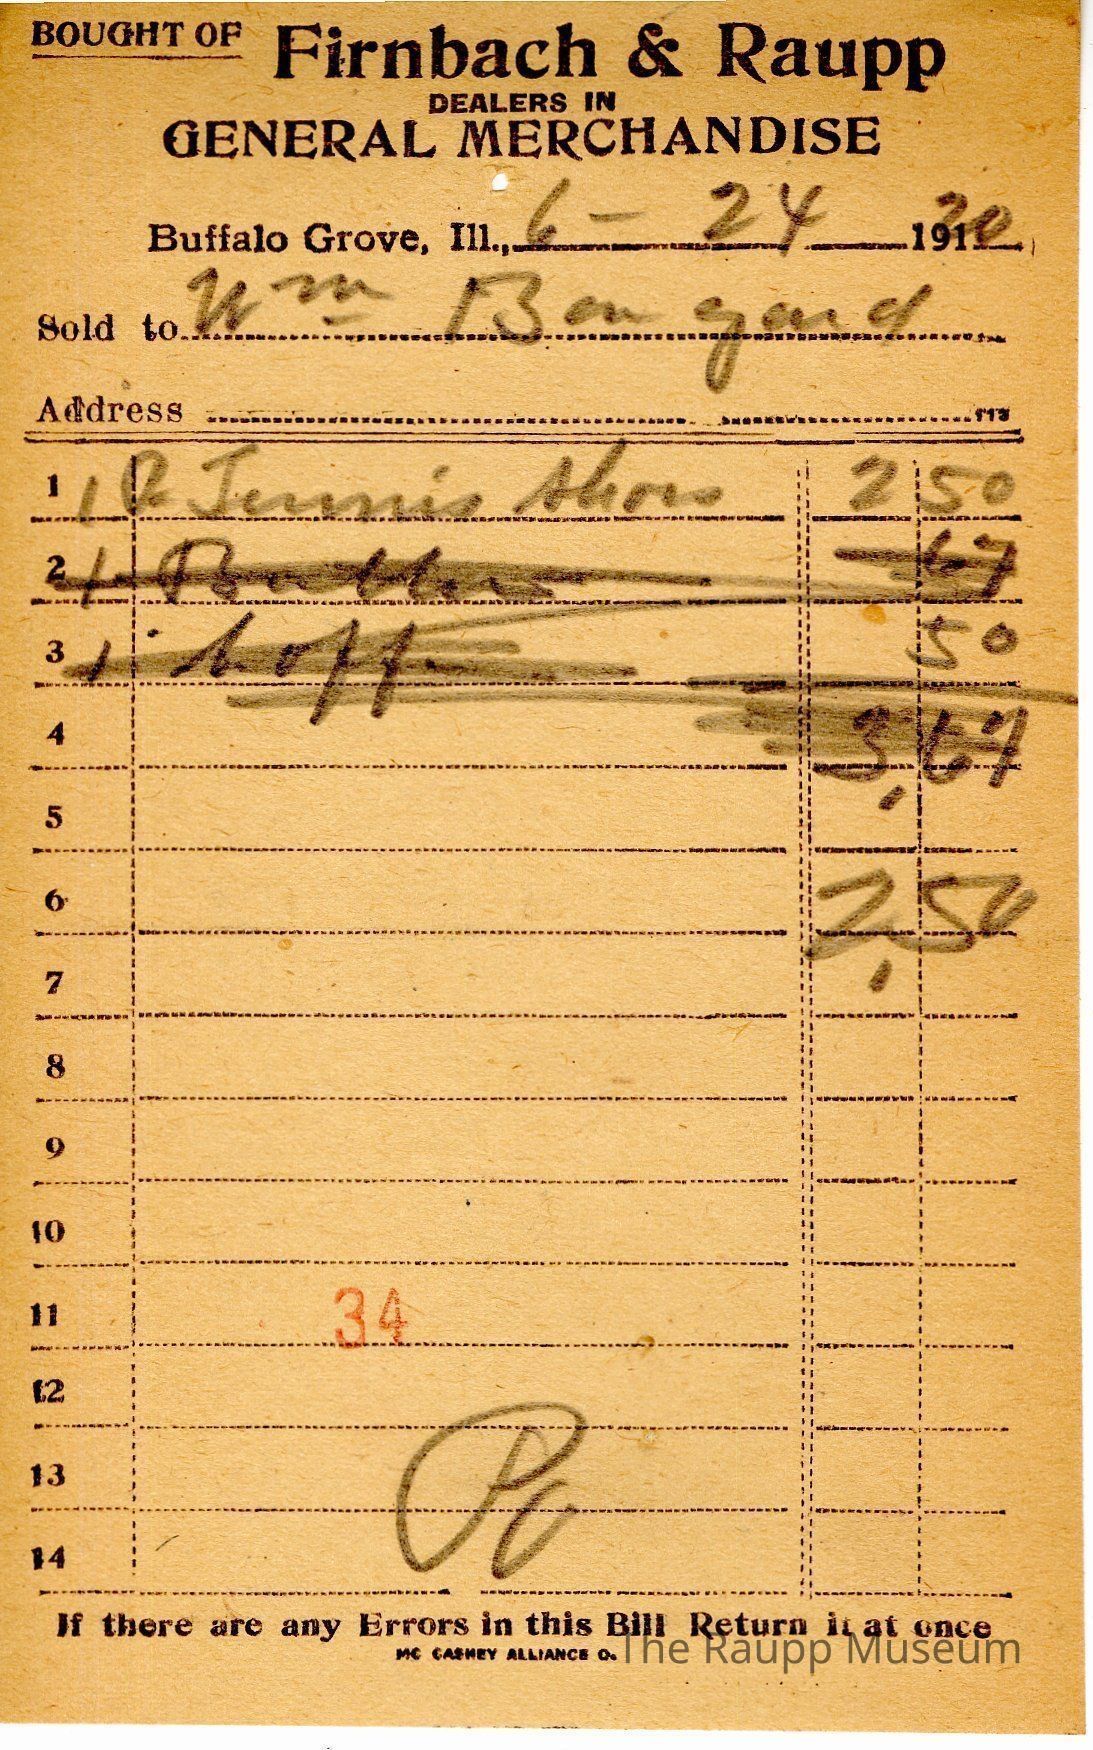 BOUGHT OF Firnbach & Raupp
DEALERS IN
GENERAL MERCHANDISE
Buffalo Grove, Ill., 6 - 24 191 20
Sold to Wm Bongard
Address
1 1 P Tennis Shoes 2 50
2 1 Butter 67
3 1 50
4 3,67
5
6 2,50
7
8
9
10
11 34
12
13
14
If there are any Errors in this Bill Return it at once
MC CASKEY ALLIANCE O.
The Raupp Museum